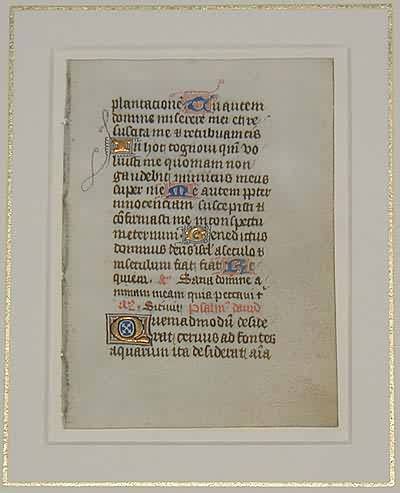 plantacionē Tu autem
domine miserere mei et re
suscita me et retribuam eis
In hoc cognovi qm̄ vo
luisti me quoniam non
gaudebit inimicus meus
super me Me autem ppter
innocentiam suscepisti et
cōfirmasti me in conspectu
in eternum Benedictus
dominus deus isrl a seculo et
in seculum fiat fiat Re
quiem. a. Sana domine a
nimam meam quia peccavi t
a. Sitivit Psalm david
Quemadmodū desite
rat cervus ad fontes
aquarum ita desiderat aīa